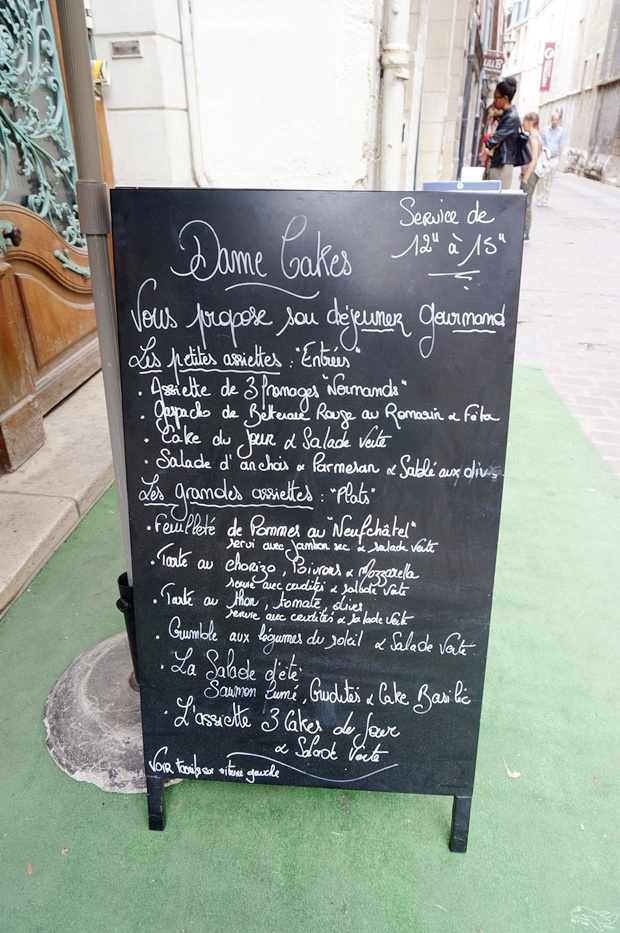 Service de
12" à 15"
Dame Cakes
Vous propose son déjeuner gourmand
Les petites assiettes : "Entrées"
• Assiette de 3 fromages "Normands"
• Gaspacho de Betterave Rouge au Romarin & Féta
• Cake du jour & Salade Verte
• Salade d'anchois & Parmesan & Sablé aux olives
Les grandes assiettes : "Plats"
• Feuilleté de Pommes au "Neufchâtel"
servi avec Jambon sec & salade Verte
• Tarte au chorizo, Poivrons & Mozzarella
servie avec crudités & salade Verte
• Tarte au thon, tomate, olives
servie avec crudités & salade Verte
• Crumble aux légumes du soleil & Salade Verte
• La Salade d'été:
Saumon fumé, Crudités & Cake Basilic
• L'assiette 3 Cakes du Jour
& Salade Verte
Voir tarifs sur vitrine gauche